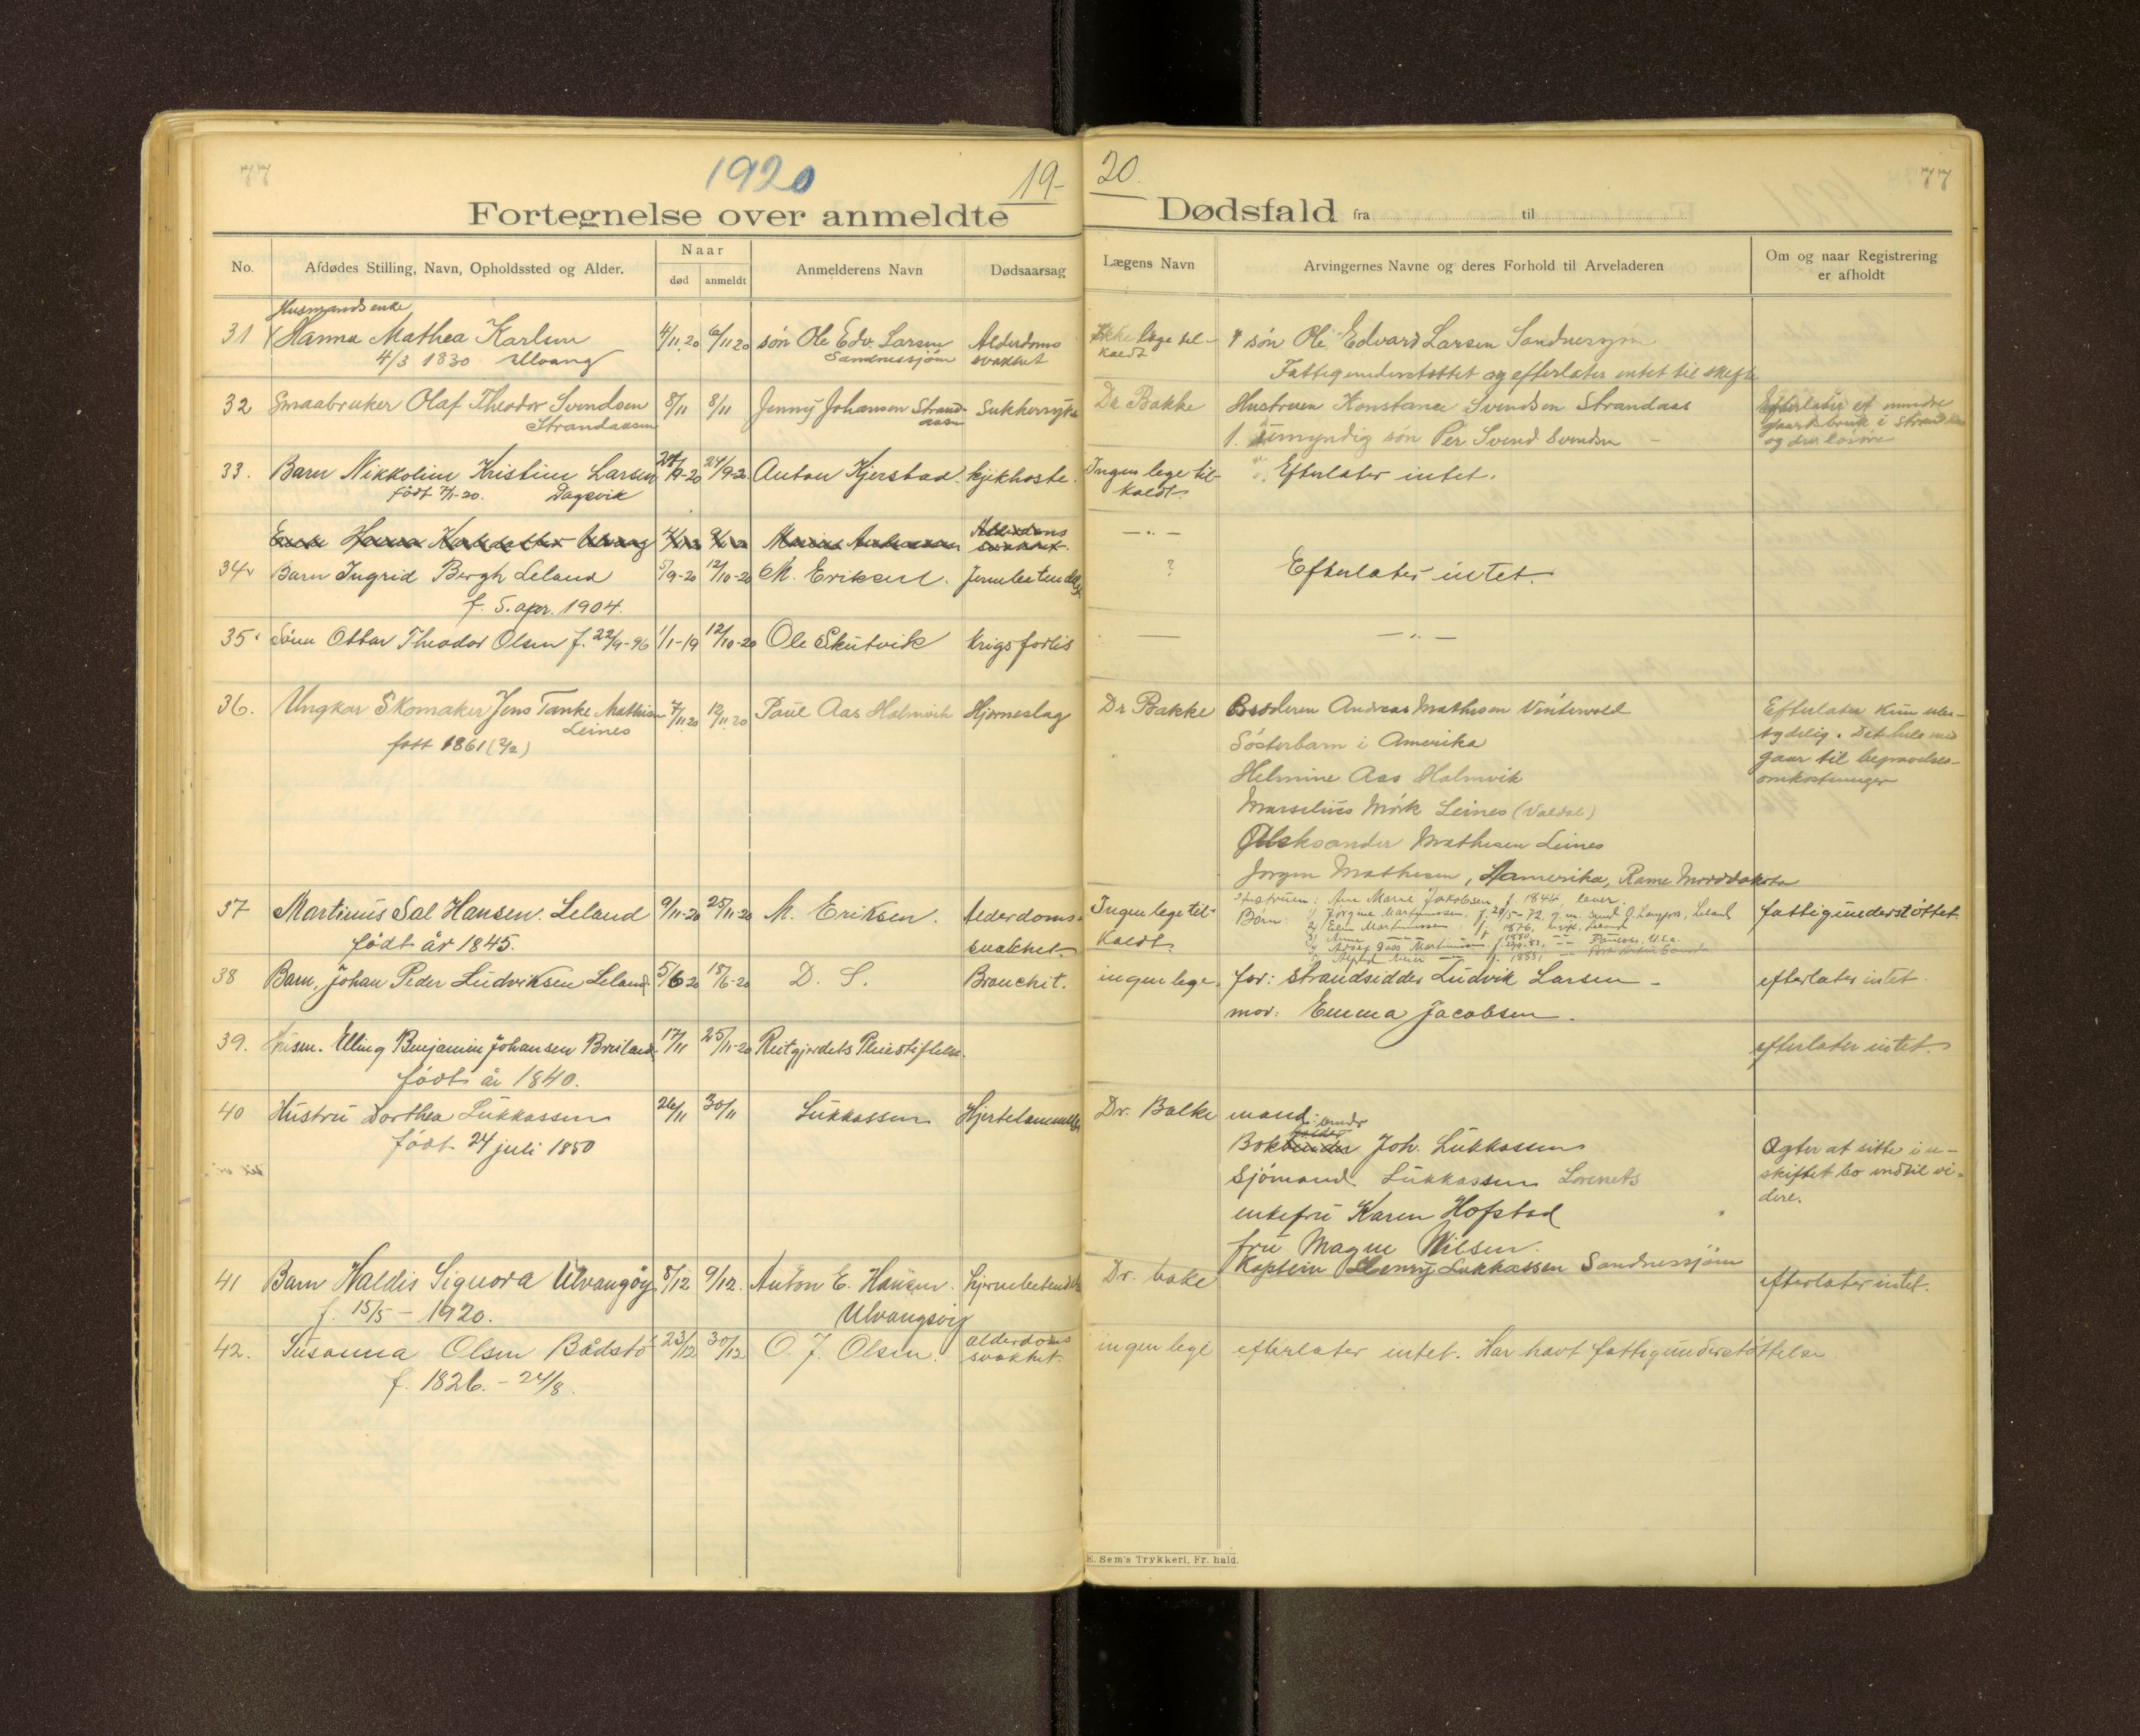 77
1920
19-
20.
77
Fortegnelse over anmeldte
Dødsfald fra til
No.
Afdødes Stilling, Navn, Opholdssted og Alder.
Naar
død
anmeldt
Anmelderens Navn
Dødsaarsag
Lægens Navn
Arvingernes Navne og deres Forhold til Arveladeren
Om og naar Registrering
er afholdt
Husmandsenke
31 Hanna Mathea Karlsen 4/11.20 6/11 20 søn Ole Edv. Larsen Alderdoms Ikke læge til- søn Ole Edvard Larsen Sandnessjøen
4/3 1830 Ulvang Sandnessjøen svakhet kaldt
Fattigunderstøttet og efterlater intet til skifte
32 Smaabruker Olaf Theodor Svendsen 8/11 8/11 Jenny Johansen Strand- Sukkersyke Dr Bakke Hustruen Konstance Svendsen Strandaas Efterlater et mindre
Strandaasen aasen gaardsbruk i Strandaas
1. umyndig søn Per Svend Svendsen og den løsøre
33. Barn Nikkoline Kristine Larsen 9-20 24/9-20 Anton Kjerstad. kjikhoste. Ingen lege til- Efterlater intet.
født 7/1-20. Dagsvik kaldt.
34 Barn Ingrid Bergh Leland 5/9-20 12/10-20 M. Eriksen. ? Efterlater intet.
f. 5. apr. 1904.
35 Sönn Ottar Theodor Olsen f. 22/9-96 1/1-19 12/10-20 Ole Skutvik krigsforlis — — " —
36. Ungkar Skomaker Jens Tanke Mathisen 7/11 20 12/11 20 Paul Aas Holmvik Hjerneslag Dr Bakke Broderen Andreas Mathesen Vintervold Efterlater kun ube-
Leines tydelig. Det hele med
født 1861 (2/2) Søsterbarn i Amerika gaar til begravelses-
Helmine Aas Holmvik omkostninger
Marselius Mörk Leines (Valdal)
Aleksander Mathesen Leines
Jørgen Mathesen, Amerika, Rame Norddakota
37 Martinus Sal Hansen. Leland 9/11-20 25/11-20 M. Eriksen. Alderdoms- Ingen lege til- Hustruen: Ane Marie Jakobsen, f. 1844, lever. fattigunderstøttet
født år 1845. svakhet. kaldt. Børn: 1) Jørgine Martinussen, f. 29/5-72, Leland
2) Elen Martinussen f. 1876, Leland
38 Barn, Johan Peder Ludviksen Leland 5/6 20 15/6-20 D. S. Bronchit. ingen lege. far: strandsidder Ludvik Larsen - efterlater intet.
mor: Emma Jacobsen.
39. Elling Benjamin Johansen Breiland 17/11 25/11-20 Reitgjerdets Pleiestiftelse. efterlater intet.
født år 1840.
40 Hustru Dorthea Lukkassen 26/11 30/11 Lukkassen Hjertelammelse Dr. Balke mand:
født 24 juli 1850 Bokbinder Joh. Lukkassen Agter at sitte i u-
Sjömand Lukkassen Lorents skiftet bo indtil vi-
enkefru Karen Hofstad dere.
fru Magne Nilsen.
Kaptein Henry Lukkassen Sandnessjøen
41 Barn Haldis Signora Ulvangöy 8/12 9/12. Anton E. Hansen. hjernebetendelse Dr. bake efterlater intet.
f. 15/5 - 1920. Ulvangsvig
42. Susanna Olsen Bådstö 23/12 30/12 O. J. Olsen. alderdoms ingen lege efterlater intet. Har havt fattigunderstøttelse.
f. 1826. - 24/8. svakhet.
E. Sem's Trykkeri, Fr.hald.